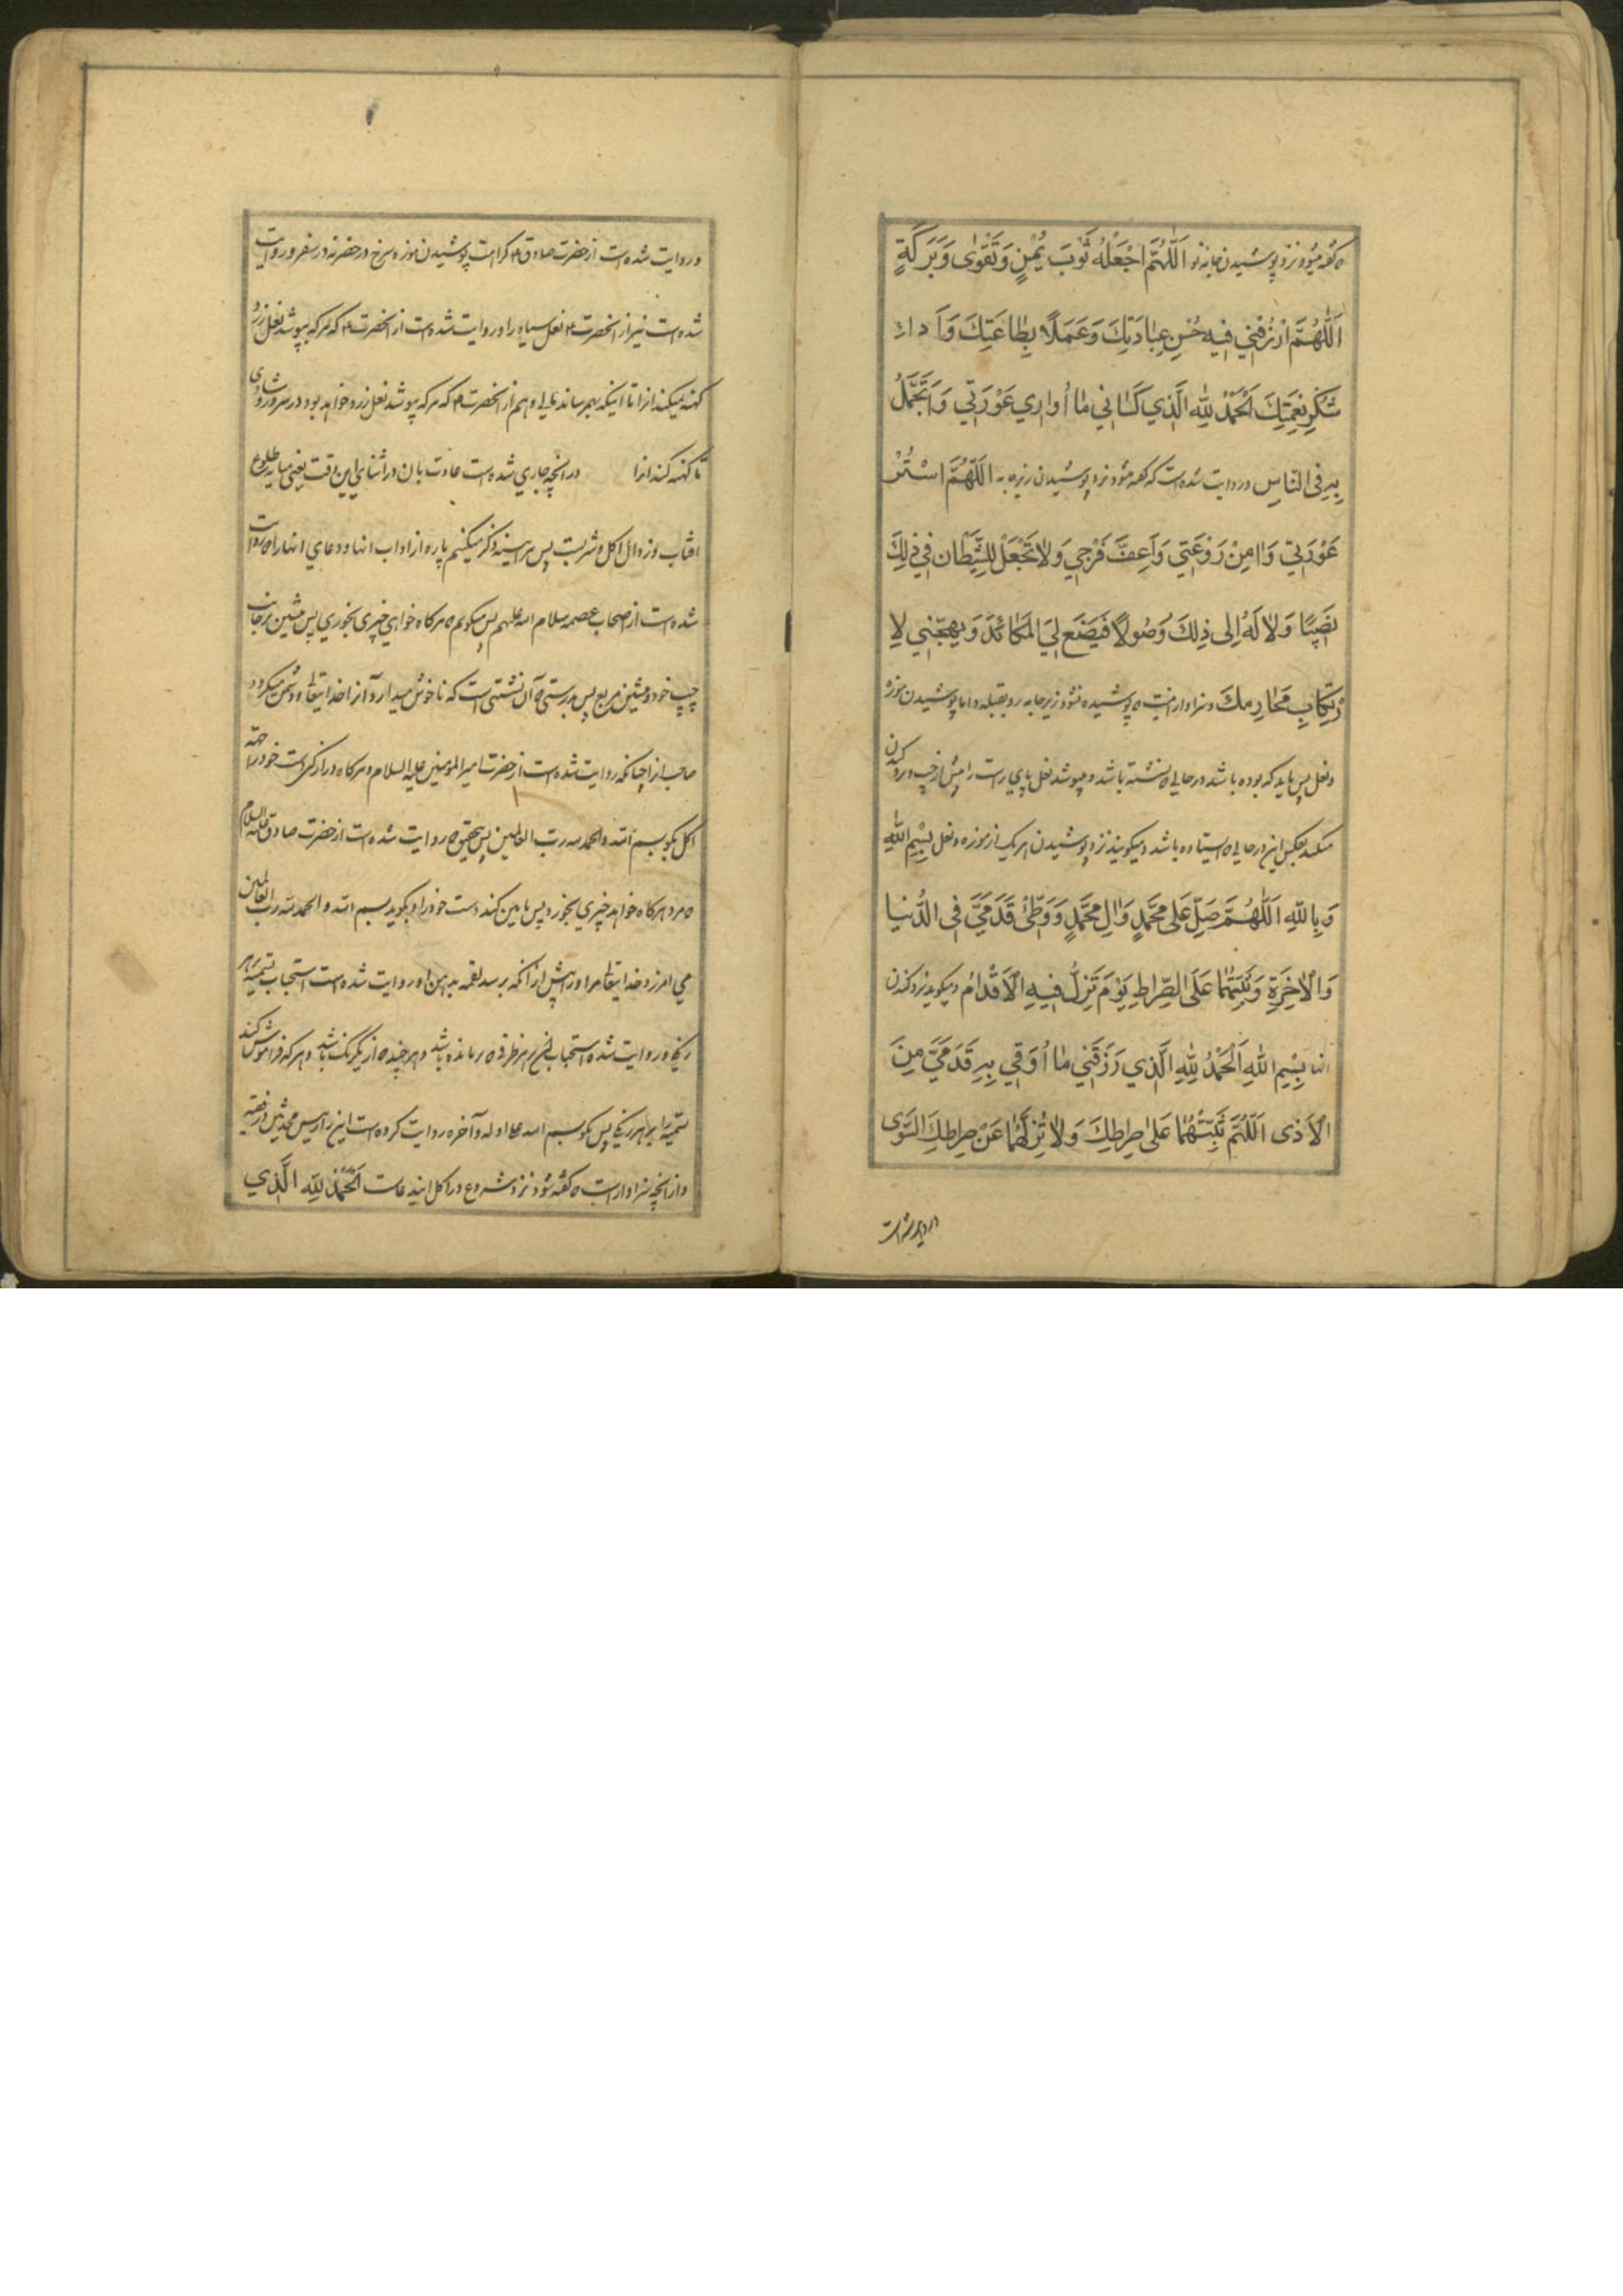 که گفته میشود نزد پوشیدن جامه نو اَللّٰهُمَّ اجْعَلْهُ ثَوْبَ يُمْنٍ وَتَقْوٰى وَبَرَكَةٍ
اَللّٰهُمَّ ارْزُقْنِي فِيهِ حُسْنَ عِبَادَتِكَ وَعَمَلًا بِطَاعَتِكَ وَاَدٰاءَ
شُكْرِ نِعْمَتِكَ اَلْحَمْدُ لِلّٰهِ الَّذِي كَسَانِي مٰا اُوارِي عَوْرَتِي وَاَتَجَمَّلُ
بِهِ فِي النّاسِ و روایت شده است که گفته میشود نزد پوشیدن زیرجامه اَللّٰهُمَّ اسْتُرْ
عَوْرَتِي وَاٰمِنْ رَوْعَتِي وَاَعِفَّ فَرْجِي وَلاٰ تَجْعَلْ لِلشَّيْطٰانِ فِي ذٰلِكَ
نَصِيبًا وَلاٰ لَهُ اِلى ذٰلِكَ وُصُولًا فَيَضَعَ لِيَ الْمَكٰائِدَ وَيُهَيِّجَنِي لِاِ
رْتِكٰابِ مَحٰارِمِكَ و سزاوار نیست که پوشیده شود زیرجامه رو بقبله و اما پوشیدن موزه
و نعل پس باید که بوده باشد در حالی که نشسته باشد و بپوشد نعل پای راست را پیش از چپ و در کندن
میکند بعکس این در حالی که ایستاده باشد و میگویند نزد پوشیدن هر یک از موزه و نعل بِسْمِ اللّٰهِ
وَبِاللّٰهِ اَللّٰهُمَّ صَلِّ عَلى مُحَمَّدٍ وَاٰلِ مُحَمَّدٍ وَوَطِّئْ قَدَمَيَّ فِي الدُّنْيا
وَالْاٰخِرَةِ وَثَبِّتْهُمٰا عَلَى الصِّرٰاطِ يَوْمَ تَزِلُّ فِيهِ الْاَقْدٰامُ و میگوید نزد کندن
انها بِسْمِ اللّٰهِ اَلْحَمْدُ لِلّٰهِ الَّذِي رَزَقَنِي مٰا اُوَقِّي بِهِ قَدَمَيَّ مِنَ
الْاَذٰى اَللّٰهُمَّ ثَبِّتْهُمٰا عَلىٰ صِرٰاطِكَ وَلاٰ تُزِلَّهُمٰا عَنْ صِرٰاطِكَ السَّوِيِّ
و روایت شده است
و روایت شده است از حضرت صادق ع کراهت پوشیدن موزه سرخ در حضر نه در سفر و روایت
شده است نیز از انحضرت ع نعل سیاه را و روایت شده است از انحضرت ع که هر که بپوشد نعل زرد
کهنه نمیکند انرا تا اینکه بهم رساند مالی و هم از انحضرت ع که هر که بپوشد نعل زرد خواهد بود در سرور و شادی
تا کهنه کند انرا در انچه جاری شده است عادت بان در اثنای این وقت یعنی میانه طلوع
افتاب و زوال از اکل و شرب پس هر اینه ذکر میکنیم پاره از اداب انها و دعای انها را که روایت
شده است از اصحاب عصمه سلام الله علیهم پس میگویم که هرگاه خواهی چیزی بخوری پس بنشین بر جانب
چپ خود و منشین مربع پس بدرستی که آن نشستنی است که ناخوش میدارد آنرا خدایتعالی و دشمن میگیرد
صاحب انرا چنانکه روایت شده است از حضرت امیر المؤمنین علیه السلام و هرگاه دراز کنی دست خود را جهة
اکل بگو بسم الله والحمد لله رب العالمین پس بتحقیق که روایت شده است از حضرت صادق علیه السلام
که مرد هرگاه خواهد چیزی بخورد پس پایین کند دست خود را و بگوید بسم الله و الحمد لله رب العالمین
می امرزد خدایتعالی مر او را پیش از آنکه برسد لقمه بدهن او و روایت شده است استحباب تسمیه بر هر
رنگی و روایت شده استحباب ان بر هر ظرفی که بر مائده باشد و هر چند که از یکرنگ باشد و هر که فراموش کند
تسمیه را بر هر رنگی پس بگوید بسم الله علی اوله و آخره روایت کرده است این را رئیس محدثین در فقیه
و از انچه سزاوار است که گفته شود نزد شروع در اکل این دعاست اَلْحَمْدُ لِلّٰهِ الَّذِي